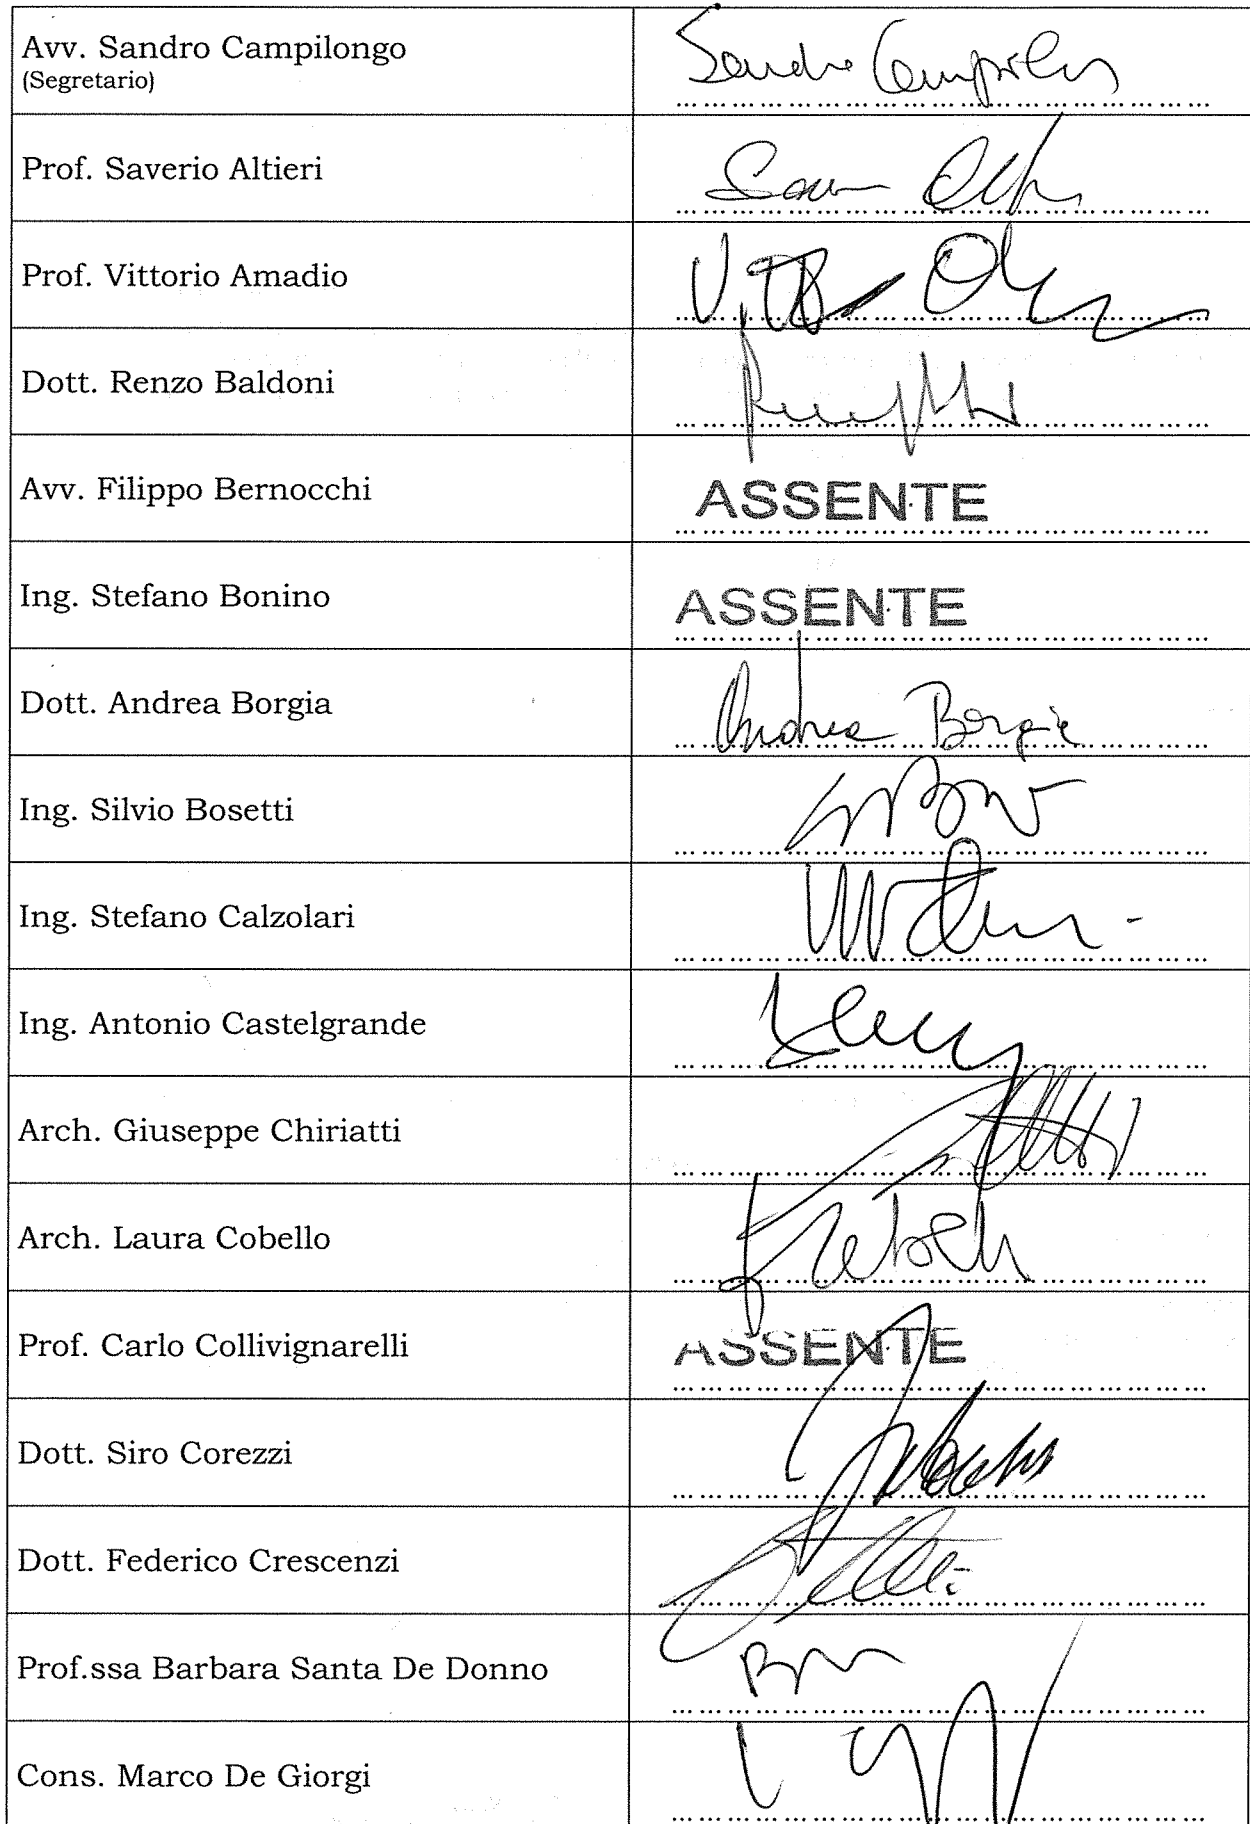 Avv. Sandro Campilongo
(Segretario)
Sandro Campilongo
Prof. Saverio Altieri
Prof. Vittorio Amadio
Dott. Renzo Baldoni
Avv. Filippo Bernocchi
ASSENTE
Ing. Stefano Bonino
ASSENTE
Dott. Andrea Borgia
Andrea Borgia
Ing. Silvio Bosetti
Ing. Stefano Calzolari
Ing. Antonio Castelgrande
Arch. Giuseppe Chiriatti
Arch. Laura Cobello
Prof. Carlo Collivignarelli
ASSENTE
Dott. Siro Corezzi
Dott. Federico Crescenzi
Prof.ssa Barbara Santa De Donno
Cons. Marco De Giorgi